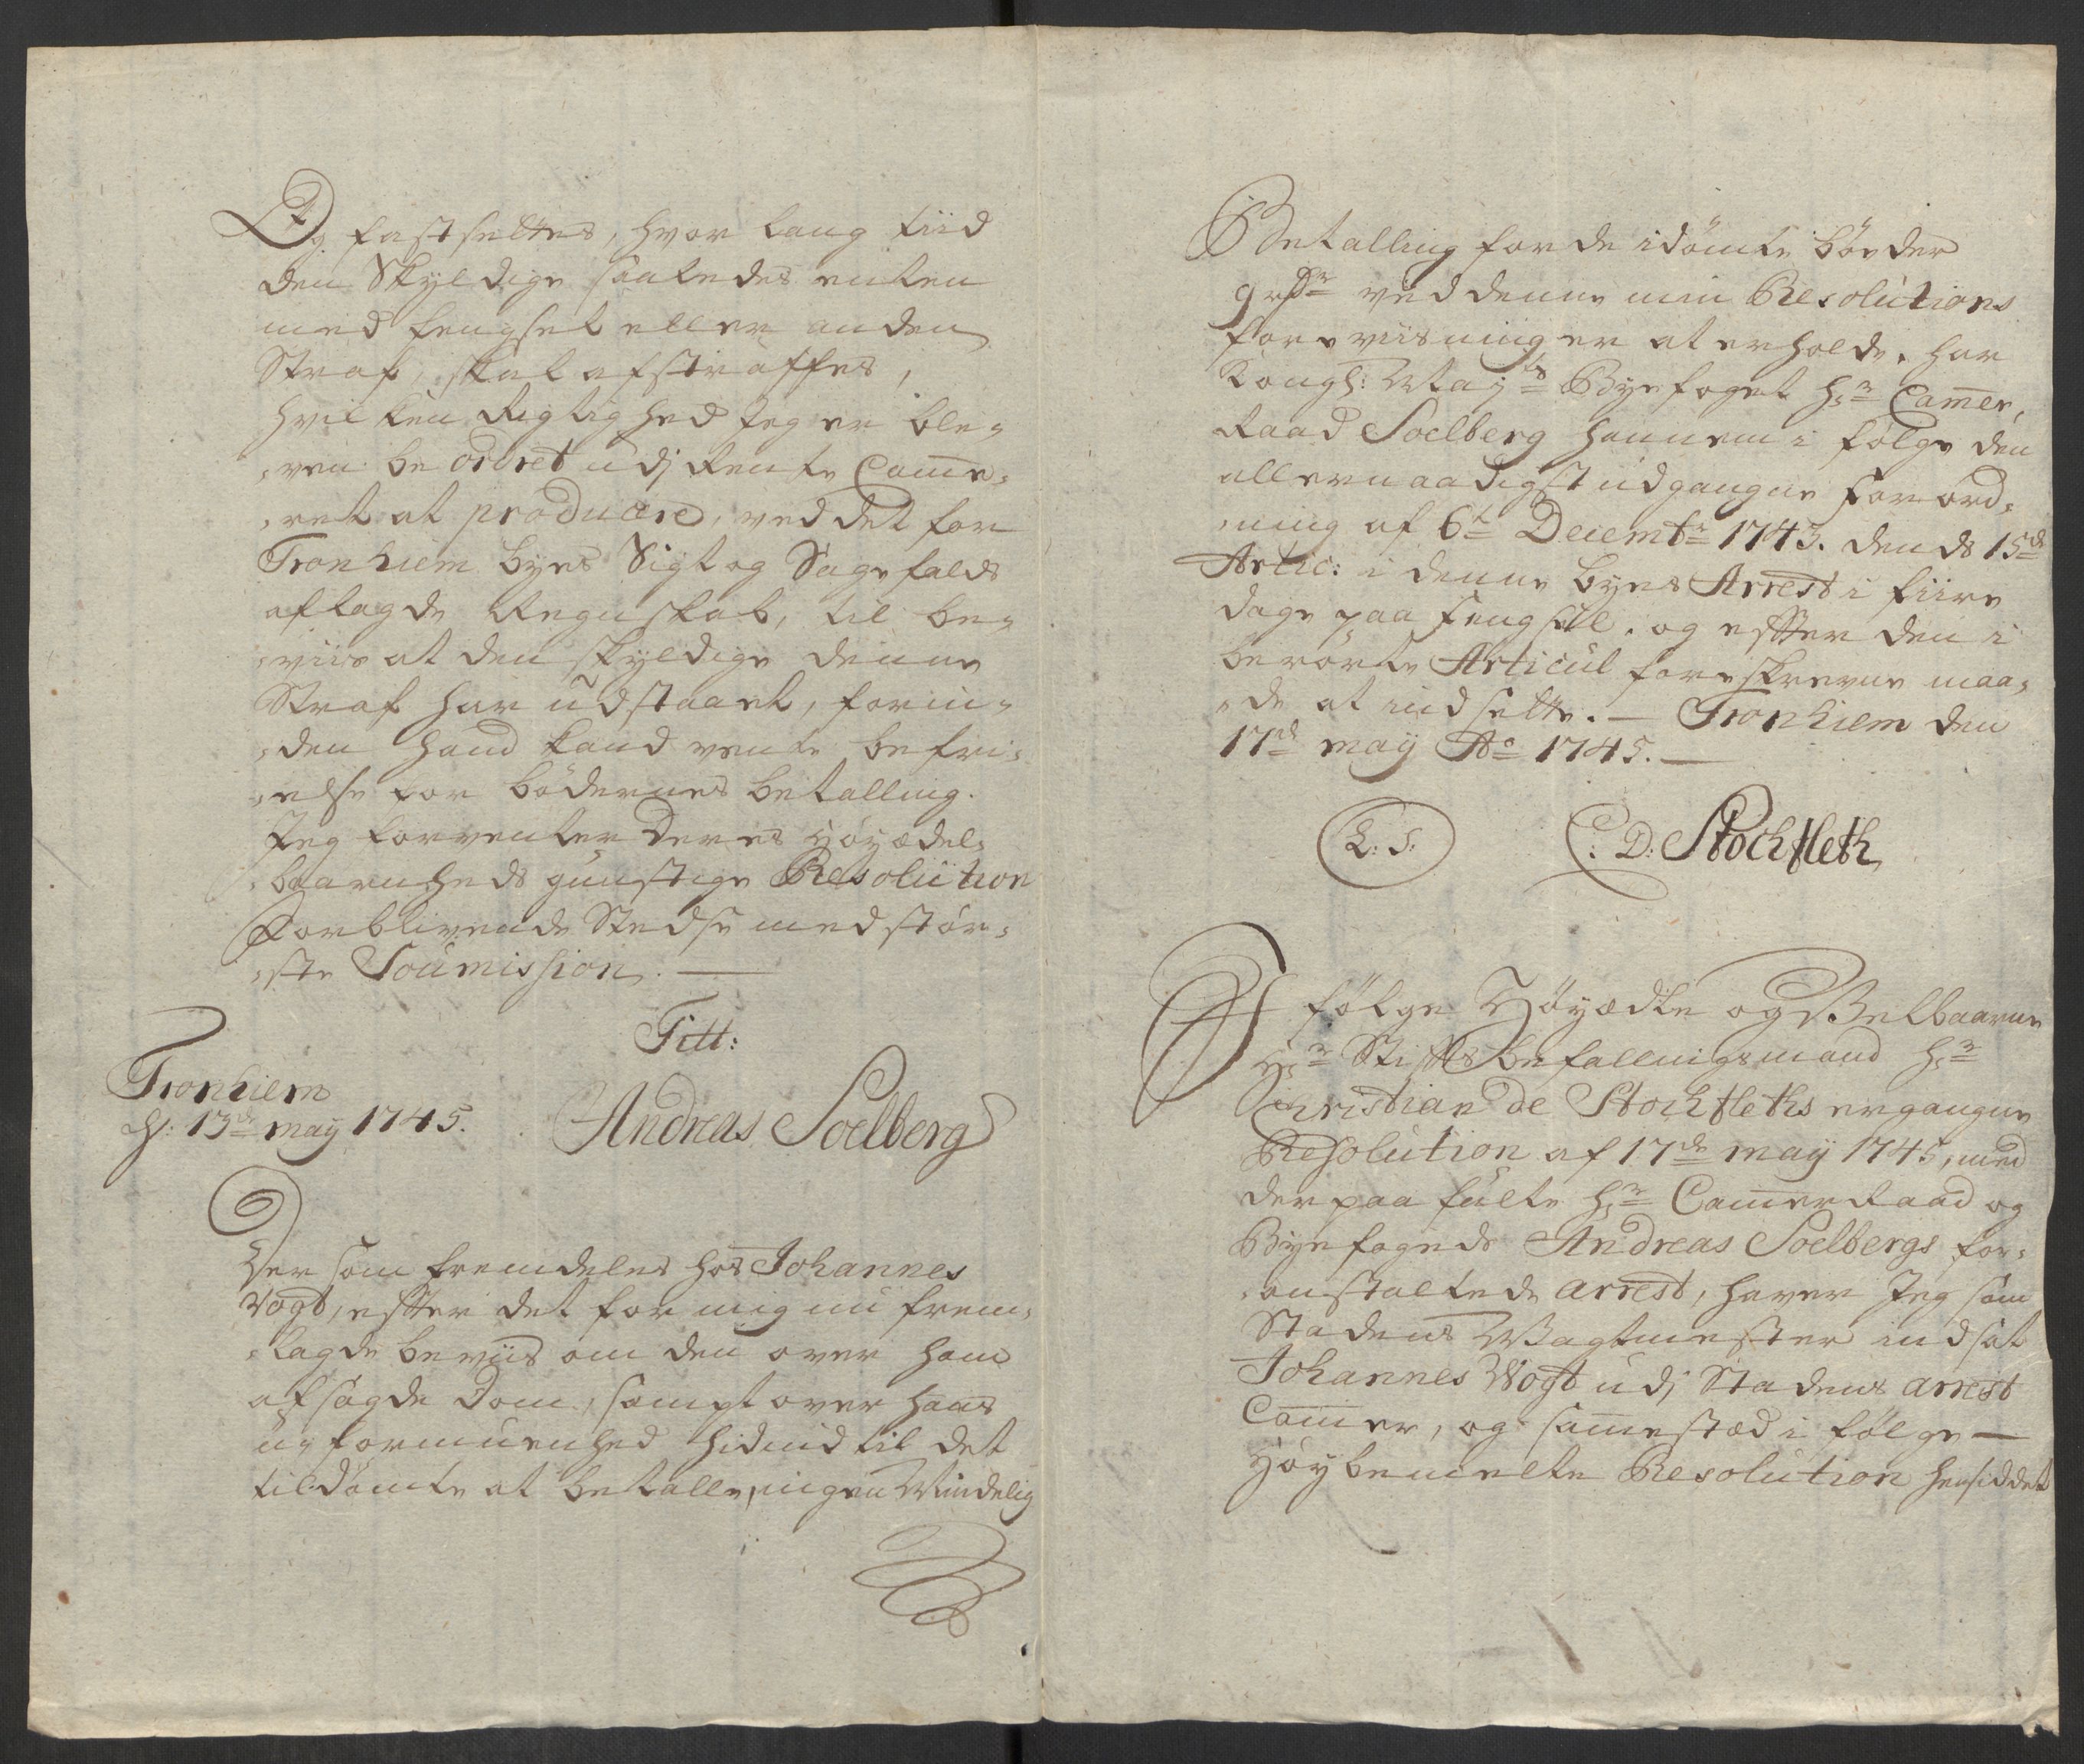 Og fastsættes, hvor lang tiid
den Skyldige saaledes enten
med fengsel eller anden
Straf, skal afstraffes,
hvilken Rigtighed jeg er ble-
-ven beordret udj Rente Came-
-ret at producere, ved det for
Tronhiem byes Sigt og Sagefalds
aflagde Regnskab, til be-
-viis at den skyldige denne
Straf har udstaaet, forin-
-den hand kand vente befri-
-else for bödernes betalling.
Jeg forventer Deres Höyædel-
-baarnheds gunstige Resolution
Forblivende Stedse med stör-
-ste Soumission. —
Titt:
Tronhiem
d: 13de may 1745.
Andreas Soelberg
Der som fremdeles hos Johannes
Vogt, effter det for mig nu frem-
-lagde beviis om den over ham
afsagde Dom, sampt over hans
uformuenhed hidind til det
tildömte at betalle, ingen Mindelig
Betalling for de idömte böder
9 rdr ved denne min Resolutions
foreviisning er at erholde, har
Kongl: Mayts Byefoget Hr Camer,
Raad Soelberg hannem i fölge den
allernaadigst udgangne Forord-
-ning af 6te Decembr 1743. dends 15de
Artic: i denne byes Arrest i fiire
dage paa fengsell, og effter den i
berörte Articul foreskrevne maa-
-de at indsette. — Tronhiem den
17de may Ao 1745. —
L: S:
C: D: Stockfleth
I fölge Höyædle og Velbaarne
Hr Stifftsbefallingsmand Hr
Christian de Stockfleths ergangne
Resolution af 17de may 1745, med
derpaa fulte Hr Camer Raad og
Byefogeds Andreas Soelbergs for-
-anstaltede arrest, haver Jeg som
Stadens Vagtmester indsat
Johannes Vogt udj Stadens arrest
Camer, og samestæd i fölge —
Höybemelte Resolution hensiddet